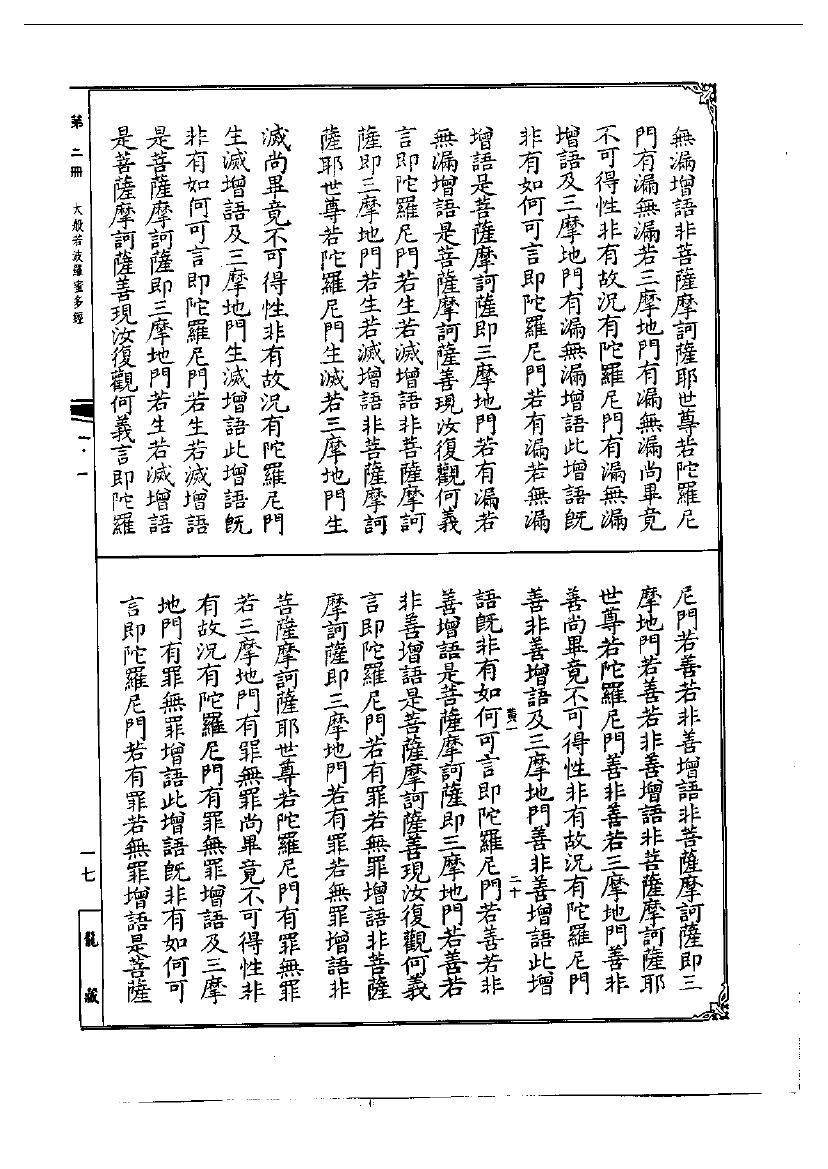 無漏增語非菩薩摩訶薩耶世尊若陀羅尼
門有漏無漏若三摩地門有漏無漏尚畢竟
不可得性非有故況有陀羅尼門有漏無漏
增語及三摩地門有漏無漏增語此增語既
非有如何可言即陀羅尼門若有漏若無漏
增語是菩薩摩訶薩即三摩地門若有漏若
無漏增語是菩薩摩訶薩善現汝復觀何義
言即陀羅尼門若生若滅增語非菩薩摩訶
薩即三摩地門若生若滅增語非菩薩摩訶
薩耶世尊若陀羅尼門生滅若三摩地門生
滅尚畢竟不可得性非有故況有陀羅尼門
生滅增語及三摩地門生滅增語此增語既
非有如何可言即陀羅尼門若生若滅增語
是菩薩摩訶薩即三摩地門若生若滅增語
是菩薩摩訶薩善現汝復觀何義言即陀羅
尼門若善若非善增語非菩薩摩訶薩即三
摩地門若善若非善增語非菩薩摩訶薩耶
世尊若陀羅尼門善非善若三摩地門善非
善尚畢竟不可得性非有故況有陀羅尼門
善非善增語及三摩地門善非善增語此增
黄一 二十
語既非有如何可言即陀羅尼門若善若非
善增語是菩薩摩訶薩即三摩地門若善若
非善增語是菩薩摩訶薩善現汝復觀何義
言即陀羅尼門若有罪若無罪增語非菩薩
摩訶薩即三摩地門若有罪若無罪增語非
菩薩摩訶薩耶世尊若陀羅尼門有罪無罪
若三摩地門有罪無罪尚畢竟不可得性非
有故況有陀羅尼門有罪無罪增語及三摩
地門有罪無罪增語此增語既非有如何可
言即陀羅尼門若有罪若無罪增語是菩薩
第二冊 大般若波羅蜜多經
一·一
一七
龍藏